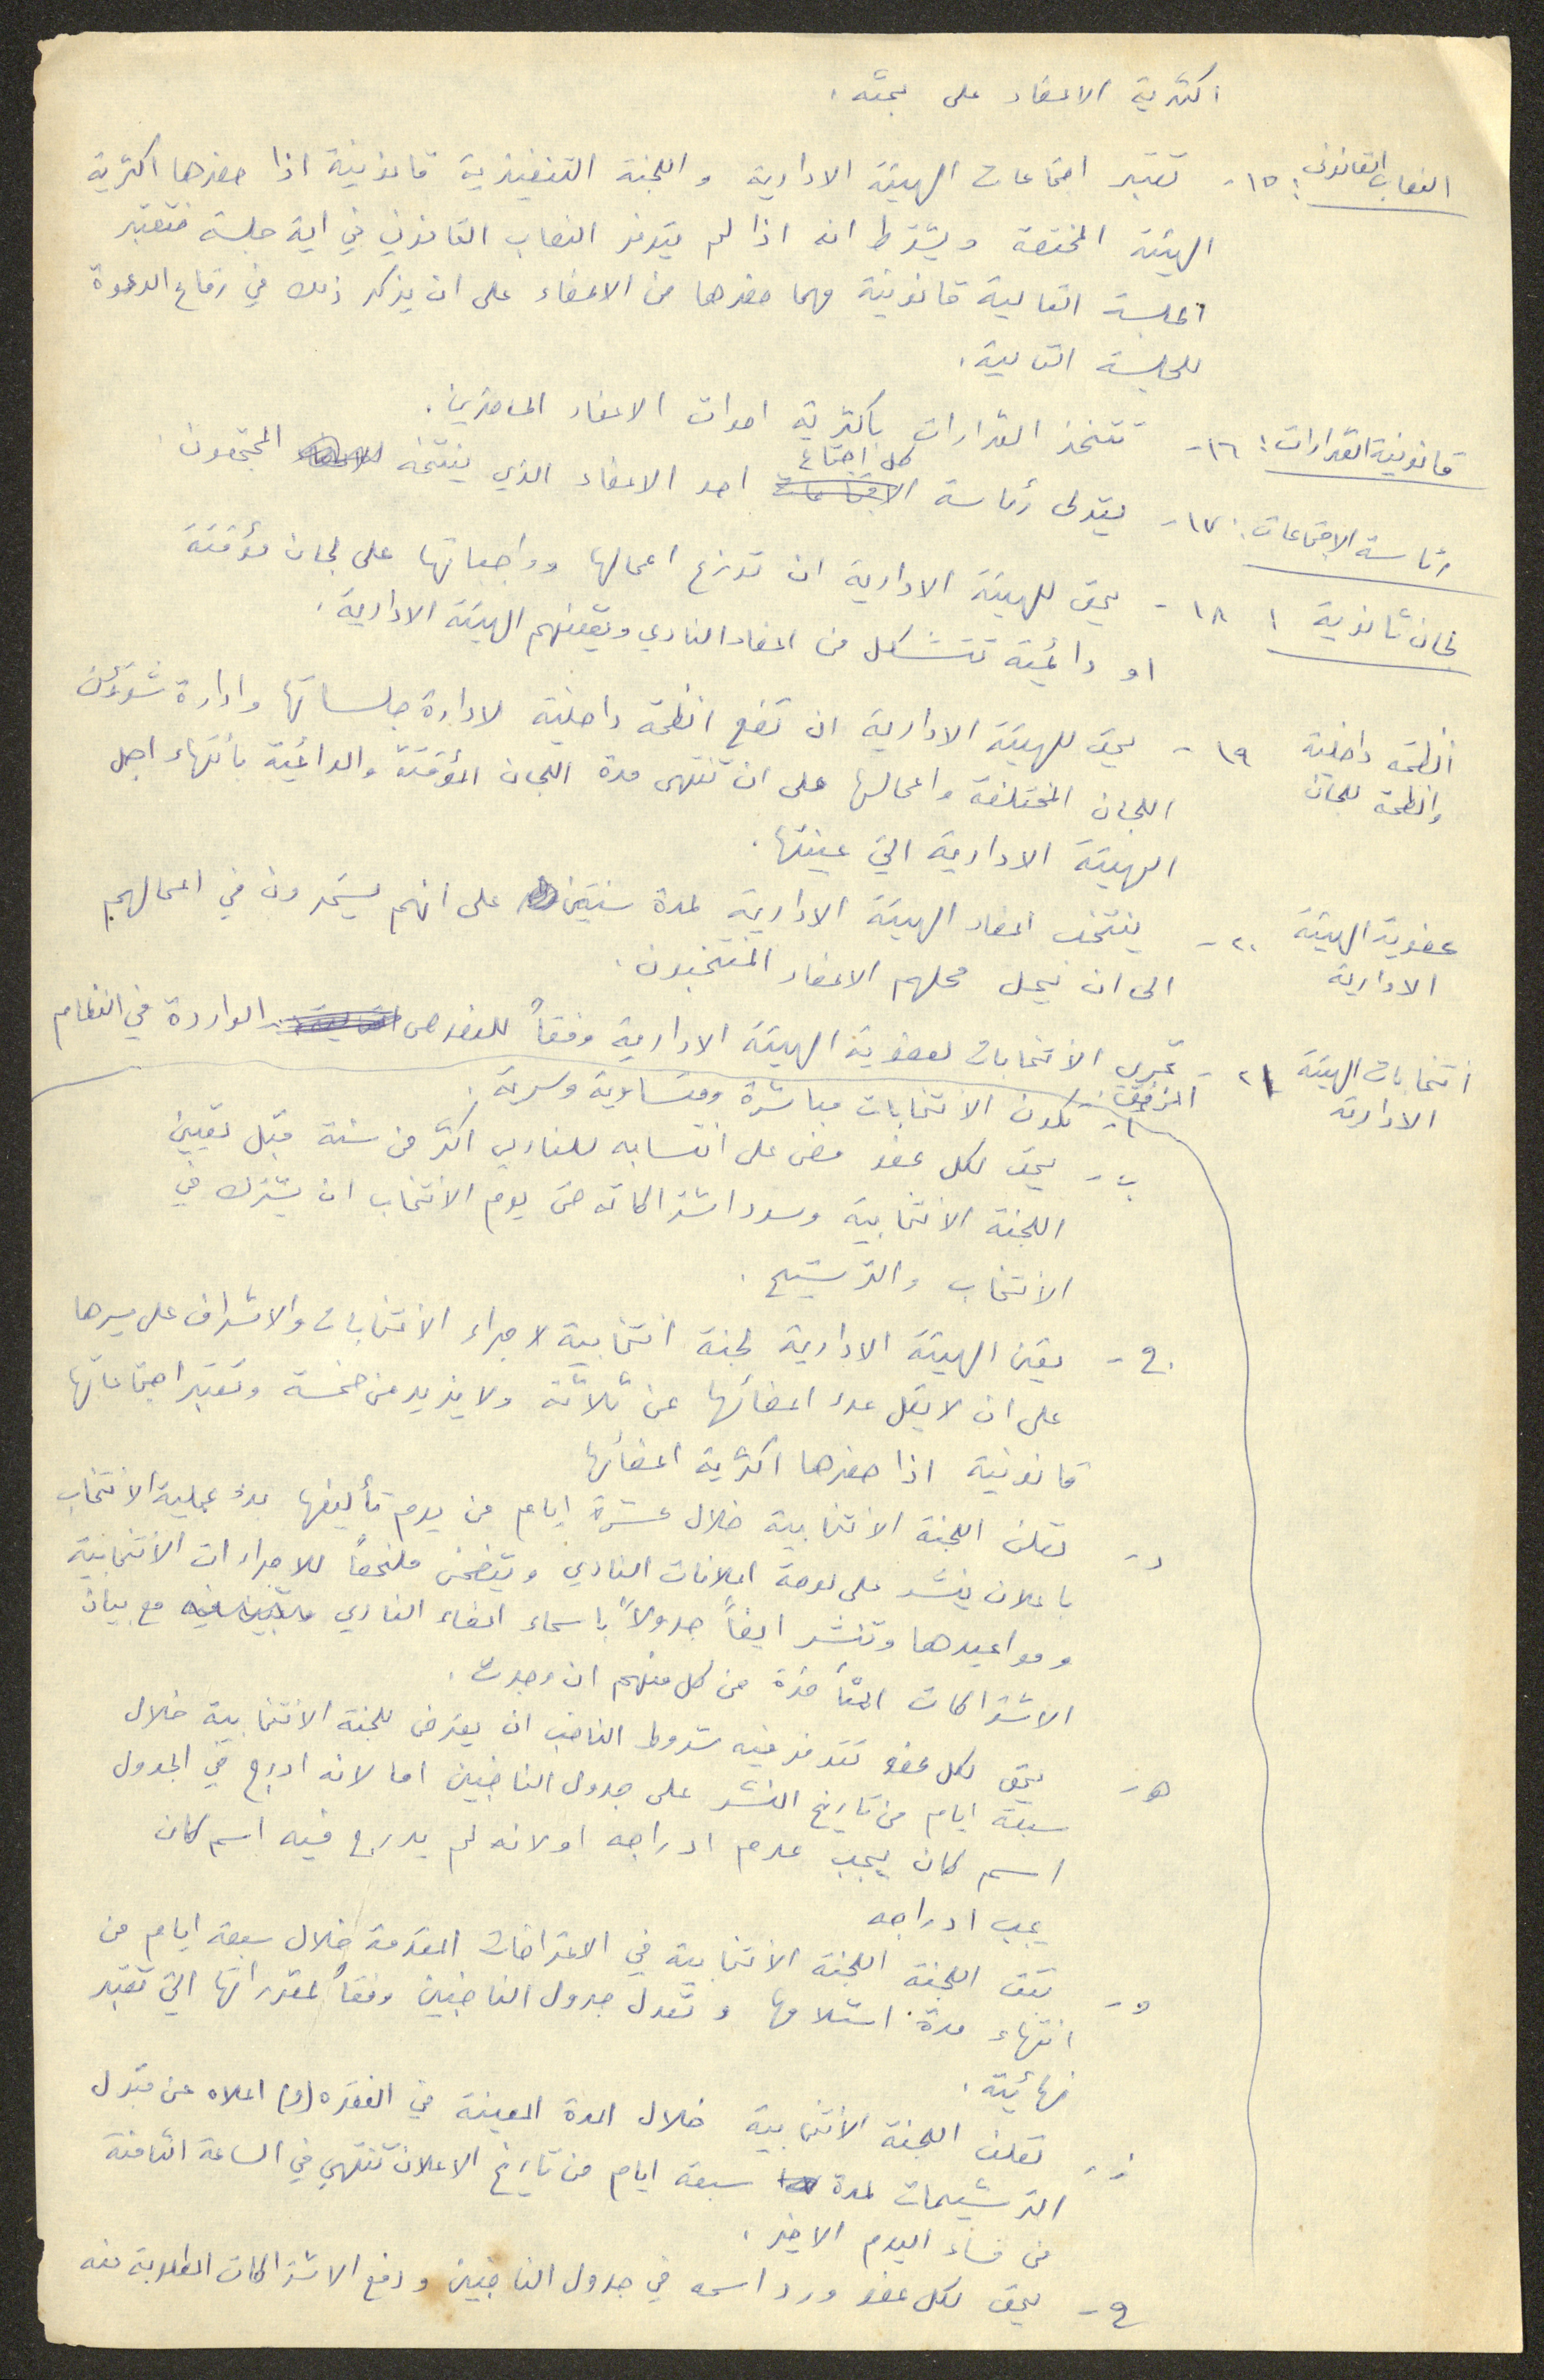 اكثرية الاعضاء على بحثه.
النصاب القانوني: ١٥- تعتبر اجتماعات الهيئة الادارية واللجنة التنفيذية قانونية اذا حضرها اكثرية
الهيئة المختصة ويشترط انه اذا لم يتوفر النصاب القانوني في اية جلسة فتعتبر
الجلسة التالية قانونية مهما حضرها من الاعضاء على ان يذكر ذلك في رقاع الدعوة
للجلسة التالية.
قانونية القرارات: ١٦- تتخذ القرارات باكثرية اصوات الاعضاء الحاضرين.
رئاسة الاجتماعات: ١٧- يتولى رئاسة كل اجتماع احد الاعضاء الذي ينتخبه المجتمعون.
لجان ثانوية: ١٨- يحق للهيئة الادارية ان توزع اعمالها وواجباتها على لجان مؤقتة
او دائمية تتشكل من اعضاء النادي وتعينهم الهيئة الادارية.
انظمة داخلية ١٩- يحق للهيئة الادارية ان تضع انظمة داخلية لادارة جلساتها وادارة شؤون
وانظمة للجان اللجان المختلفة واعمالها على ان تنتهي مدة اللجان المؤقتة والدائمية بانتهاء اجل
الهيئة الادارية التي عينتها.
عضوية الهيئة ٢٠- ينتخب اعضاء الهيئة الادارية لمدة سنتين على انهم يستمرون في اعمالهم
الادارية الى ان يحل محلهم الاعضاء المنتخبون.
انتخابات الهيئة ٢١- تجري الانتخابات لعضوية الهيئة الادارية وفقاً للنصوص الواردة في النظام
الادارية المرفق.
أ- تكون الانتخابات مباشرة ومتساوية وسرية.
ب- يحق لكل عضو مضى على انتسابه للنادي اكثر من سنة قبل تعيين
اللجنة الانتخابية وسدد اشتراكاته حتى يوم الانتخاب ان يشترك في
الانتخاب والترشيح.
ج- تعين الهيئة الادارية لجنة انتخابية لاجراء الانتخابات والاشراف على سيرها
على ان لا يقل عدد اعضائها عن ثلاثة ولا يزيد عن خمسة وتعتبر اجتماعاتها
قانونية اذا حضرها اكثرية اعضائها
د- تعلن اللجنة الانتخابية خلال عشرة ايام من يوم تأليفها بدء عملية الانتخاب
باعلان ينشر على لوحة اعلانات النادي ويتضمن ملخصاً للاجراءات الانتخابية
ومواعيدها وتنشر ايضاً جدولاً باسماء اعضاء النادي مع بيان
الاشتراكات المتأخرة من كل منهم ان وجدت.
هـ- يحق لكل عضو تتوفر فيه شروط الناخب ان يعترض للجنة الانتخابية خلال
سبعة ايام من تاريخ النشر على جدول الناخبين اما لانه ادرج في الجدول
اسم كان يجب عدم ادراجه او لانه لم يدرج فيه اسم كان
يجب ادراجه
و- تبت اللجنة الانتخابية في الاعتراضات المقدمة خلال سبعة ايام من
انتهاء مدة استلامها وتعدل جدول الناخبين وفقاً لمقرراتها التي تعتبر
نهائية.
ز- تعلن اللجنة الانتخابية خلال المدة المعينة في الفقرة (و) اعلاه عن قبول
الترشيحات لمدة سبعة ايام من تاريخ الاعلان تنتهي في الساعة الثامنة
من مساء اليوم الاخير.
ح- يحق لكل عضو ورد اسمه في جدول الناخبين ودفع الاشتراكات المطلوبة منه